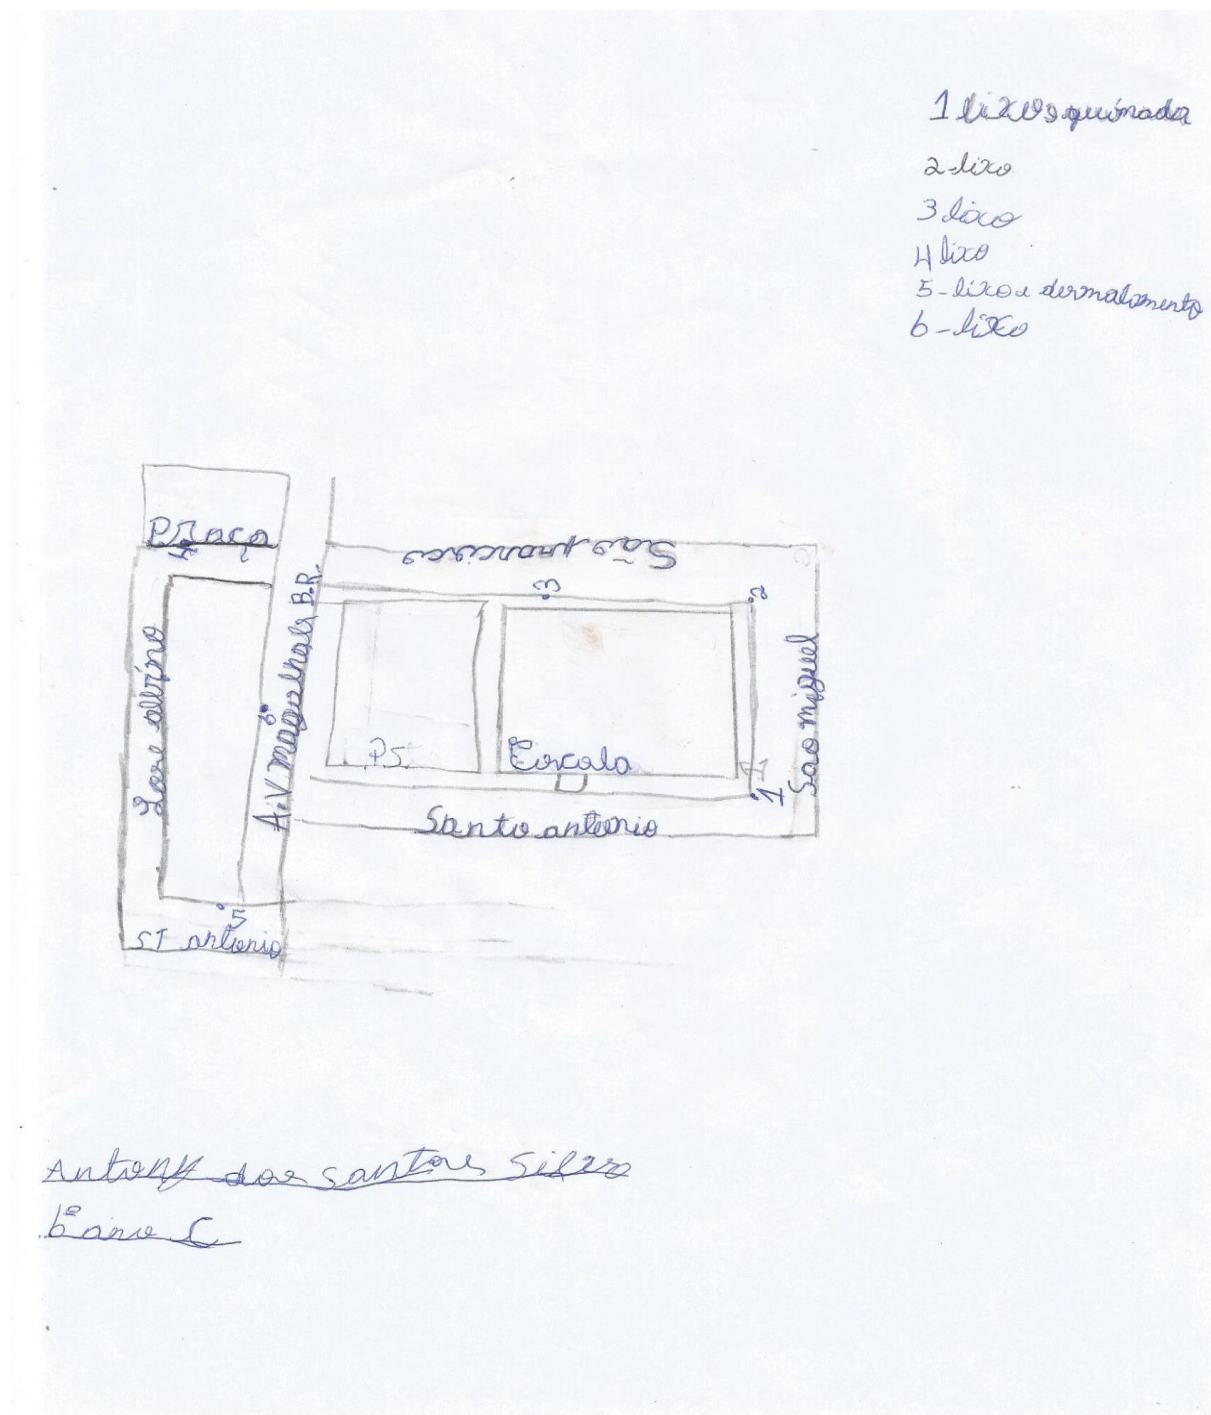 1 lixo e queimada
2-lixo
3 lixo
4 lixo
5-lixo e dermatamento
6-lixo
Praça
São francisco
4
3
2
A.V magalhals B.R.
6
São miguel
P.S.
Escola
1
Santo antonio
5
ST antonio
Antony dos santos Silva
6º ano C